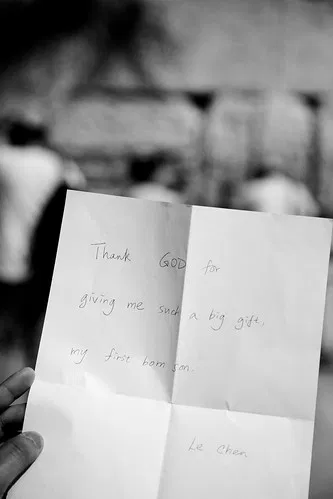 Thank GOD for
giving me such a big gift,
my first born son.
Le Chen